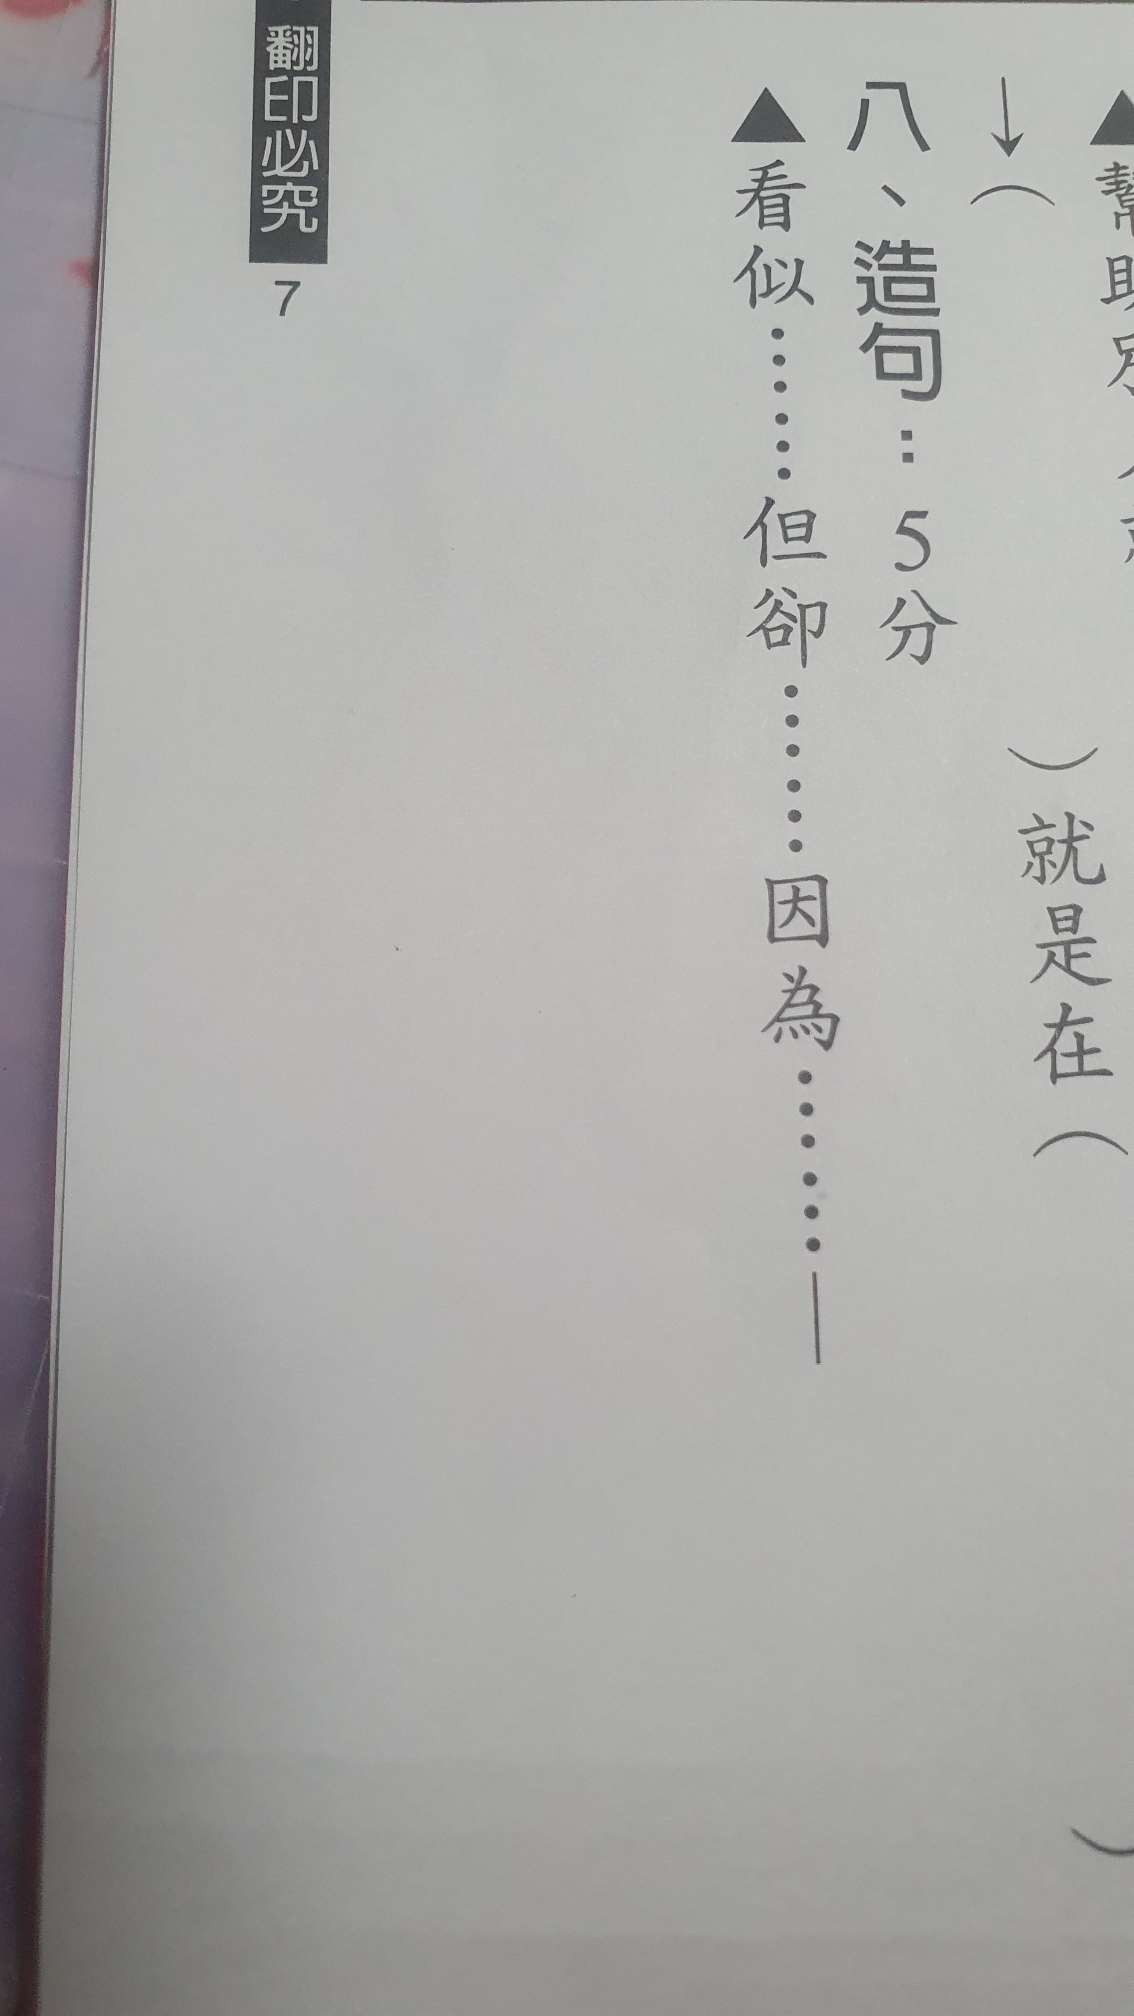 ▲幫助
↓（　）就是在（　）
八、造句：5分
▲看似……但卻……因為……—
翻印必究 7